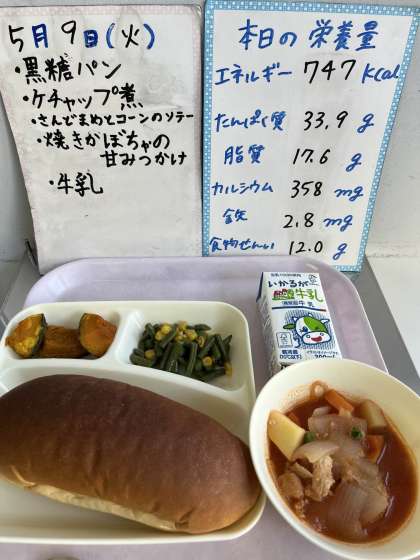 5月9日(火)
・黒糖パン
・ケチャップ煮
・さんどまめとコーンのソテー
・焼きかぼちゃの
甘みつかけ
・牛乳
本日の栄養量
エネルギー 747 kcal
たんぱく質 33.9 g
脂質 17.6 g
カルシウム 358 mg
鉄 2.8 mg
食物せんい 12.0 g
いかるが
牛乳